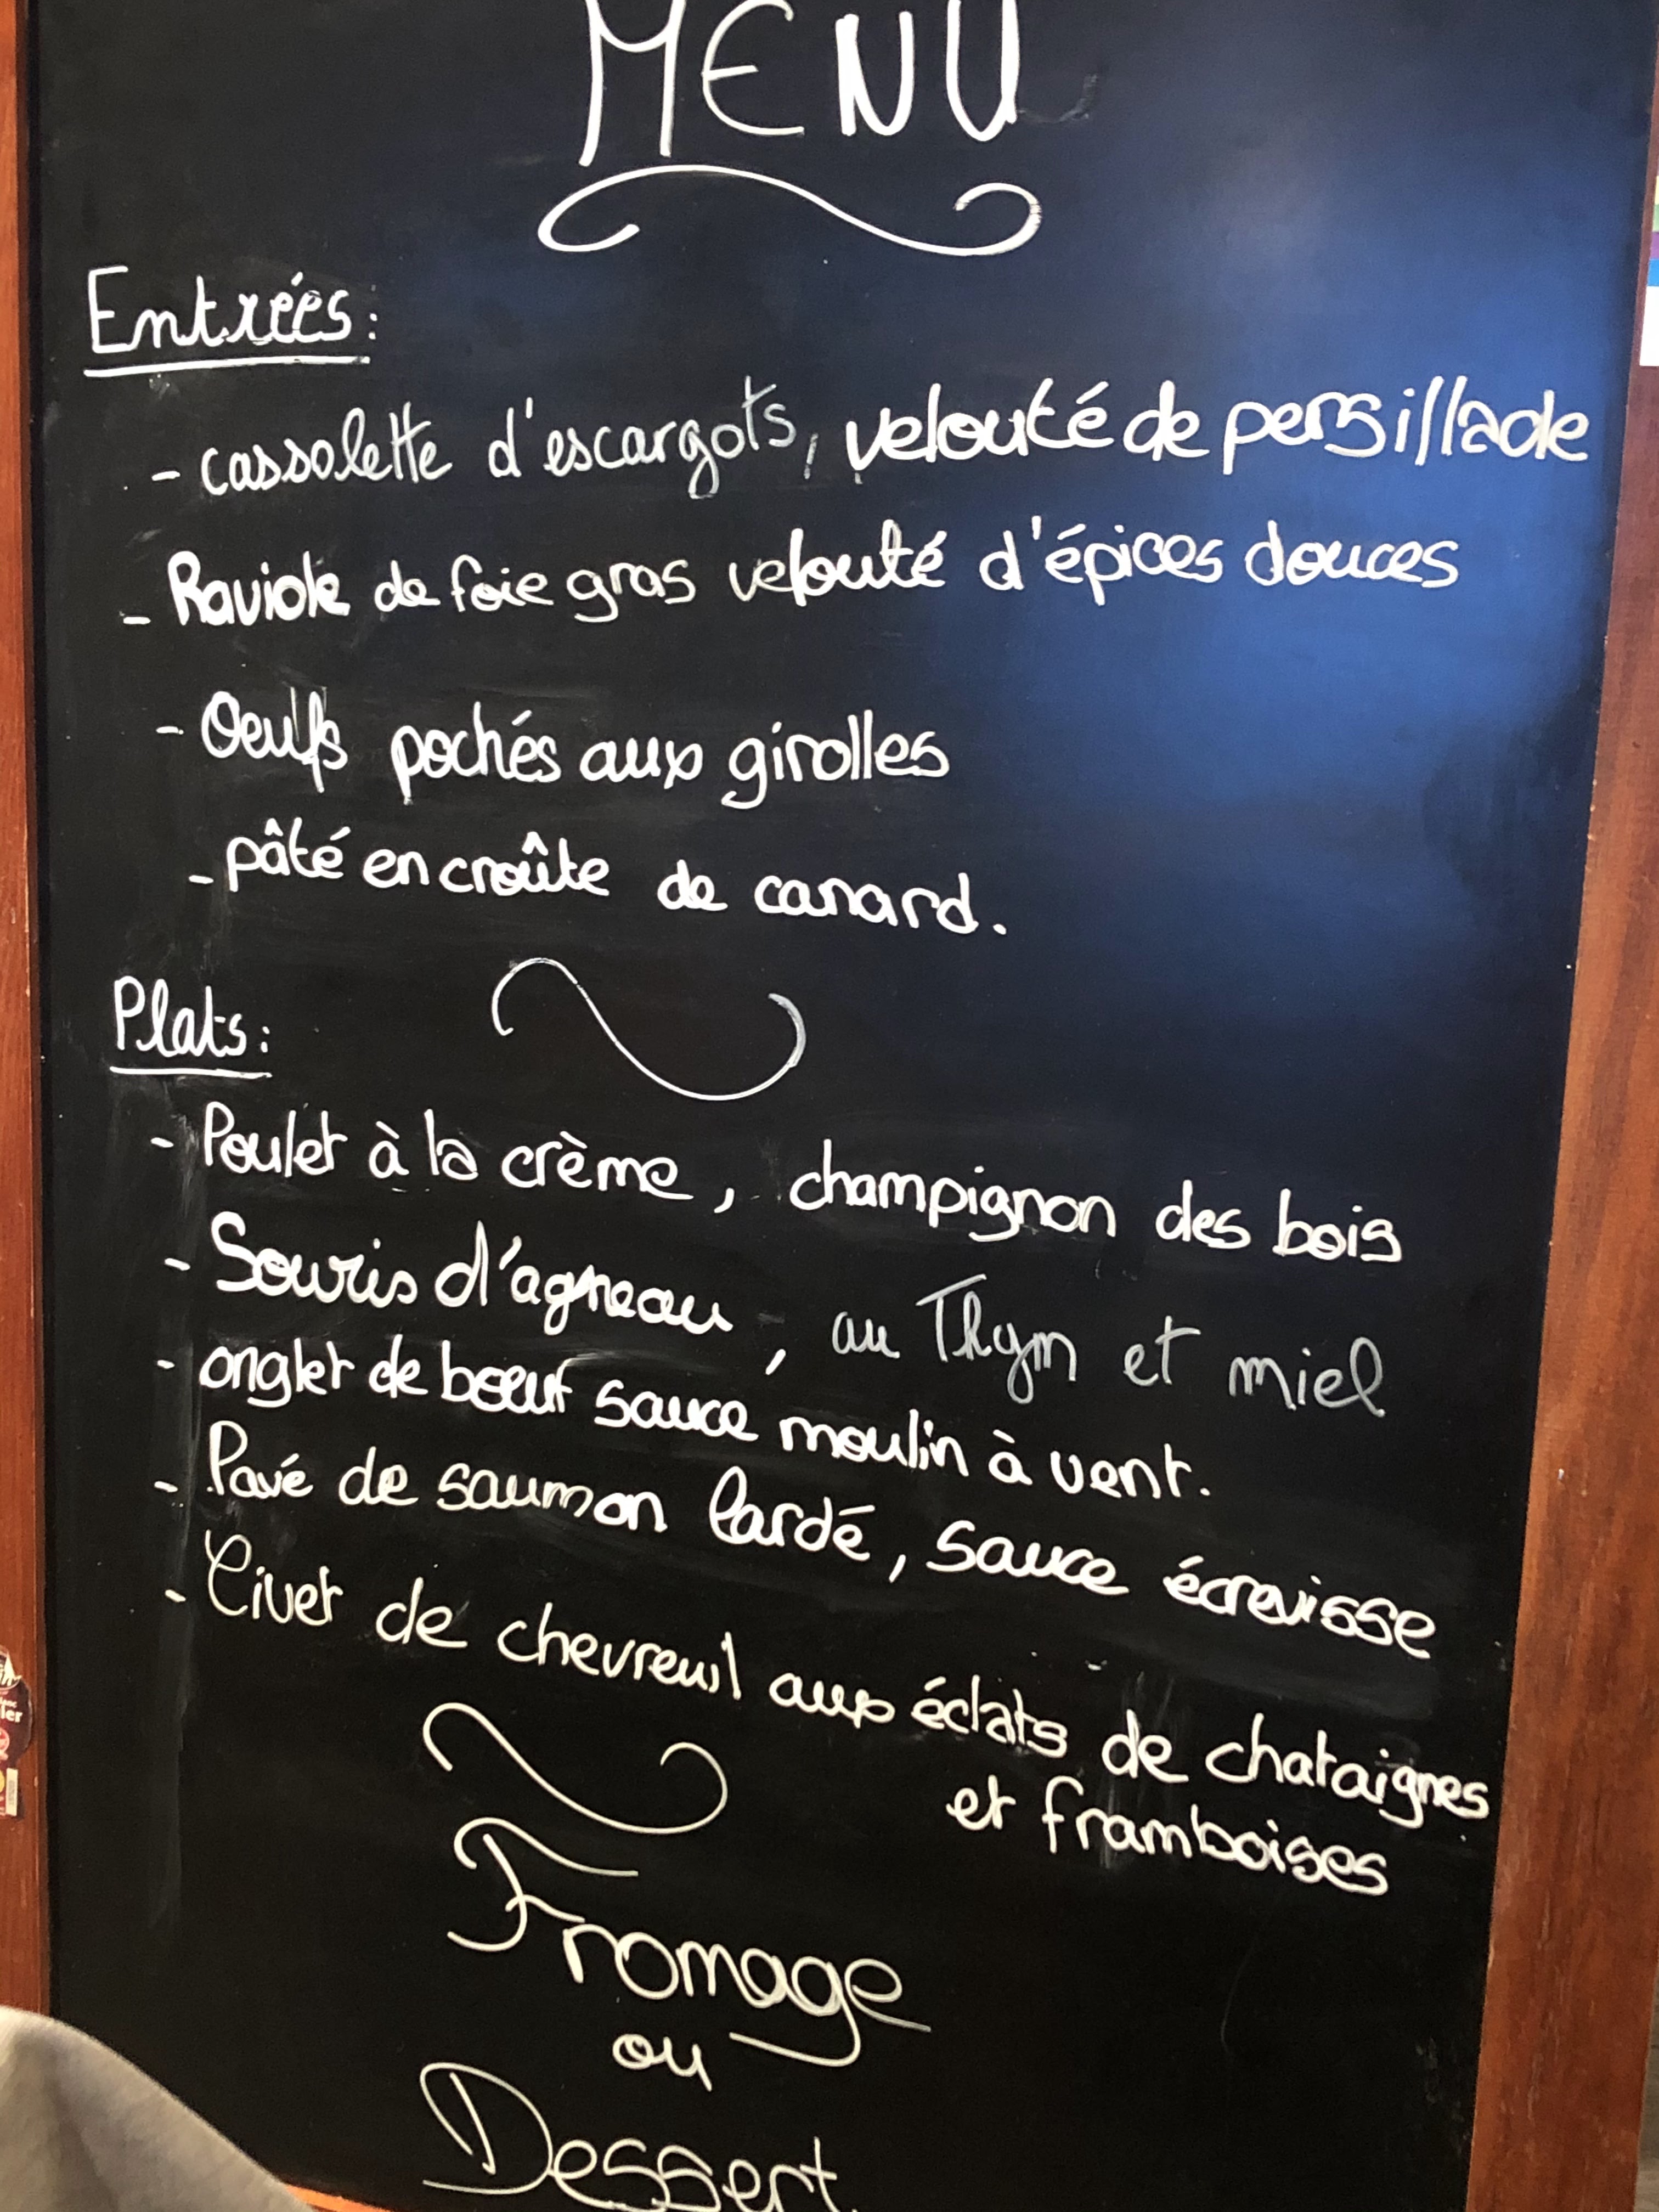 MENU
Entrées:
- cassolette d'escargots, velouté de persillade
- Raviole de foie gras velouté d'épices douces
- Oeufs pochés aux girolles
- pâté en croûte de canard.
Plats:
- Poulet à la crème, champignon des bois
- Souris d'agneau, au Thym et miel
- onglet de boeuf sauce moulin à vent.
- Pavé de saumon lardé, sauce écrevisse
- Civet de chevreuil aux éclats de chataignes
et framboises
Fromage
ou
Dessert